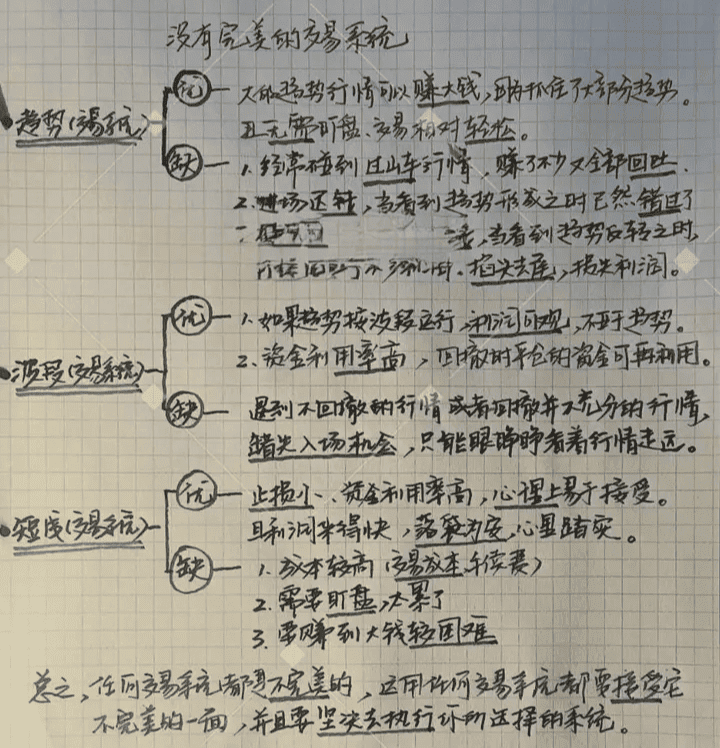 没有完美的交易系统
趋势(交易系统)
优 大的趋势行情可以赚大钱,因为抓住了大部分趋势。
且无需盯盘、交易相对轻松。
缺 1. 经常碰到过山车行情,赚了不少又全部回吐.
2. 进场迟钝,当看到趋势形成之时已然错过了
当看到趋势反转之时,
掐头去尾,损失利润。
波段(交易系统)
优 1. 如果趋势按波段运行,利润可观,不亚于趋势。
2. 资金利用率高,回撤时平仓的资金可再利用。
缺 遇到不回撤的行情或者回撤并不充分的行情,
错失入场机会,只能眼睁睁看着行情走远。
短线(交易系统)
优 止损小、资金利用率高,心理上易于接受。
且利润来得快,落袋为安,心里踏实。
缺 1. 成本较高(交易成本手续费)
2. 需要盯盘,太累了
3. 要赚到大钱较困难
总之,任何交易系统都是不完美的,运用任何交易系统都要接受它
不完美的一面,并且要坚决去执行你所选择的系统。